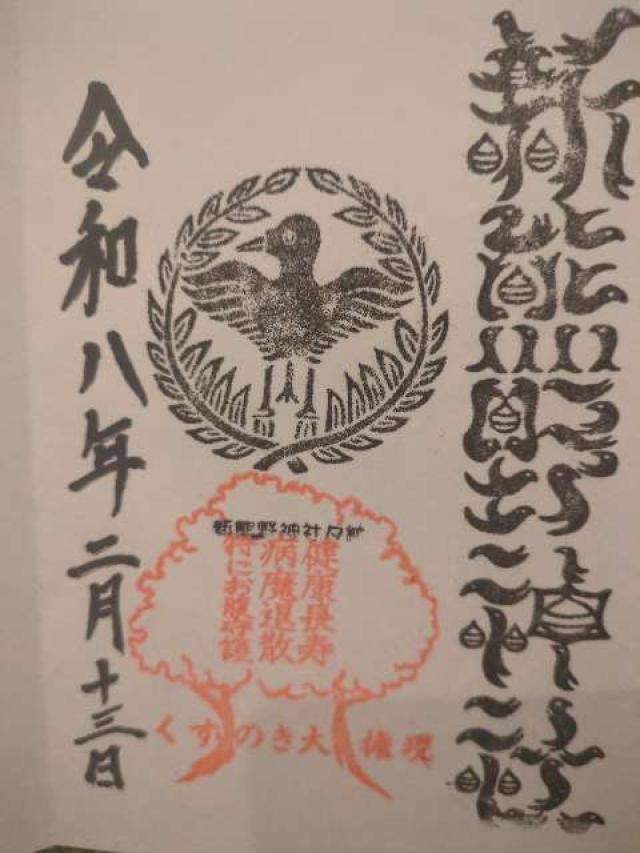 新熊野神社
新熊野神社
健康長寿
病魔退散
特にお腹守護
くすのき大権現
令和八年二月十三日